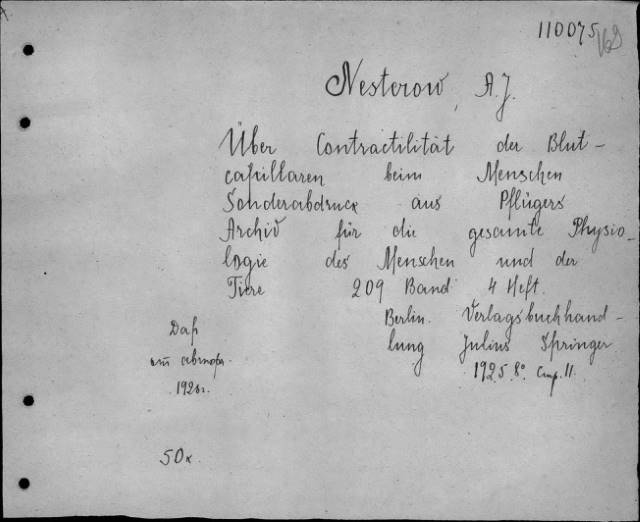 110075
Nesterow, A.J.
Über Contractilität der Blut-
capillaren beim Menschen
Sonderabdruck aus Pflügers
Archiv für die gesamte Physio-
logie des Menschen und der
Tiere 209 Band 4 Heft.
Berlin. Verlagsbuchhand-
lung Julius Springer
1925. 8° Стр. 11.
Дар
от автора.
50к.